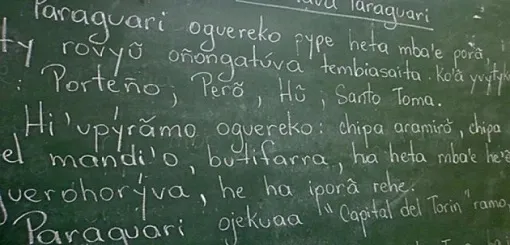 Paraguari
Paraguari oguereko pype heta mba'e porã,
ty rovyũ oñongatúva tembiasaita. Ko'ã yvyty
: Porteño, Perõ, Hũ, Santo Toma.
Hi'upyrãmo oguereko: chipa aramirõ, chipa
el mandi'o, butifarra, ha heta mba'e he'ẽ
guerohorýva, he ha iporã rehe.
Paraguari ojekuaa "Capital del Torin" ramo,